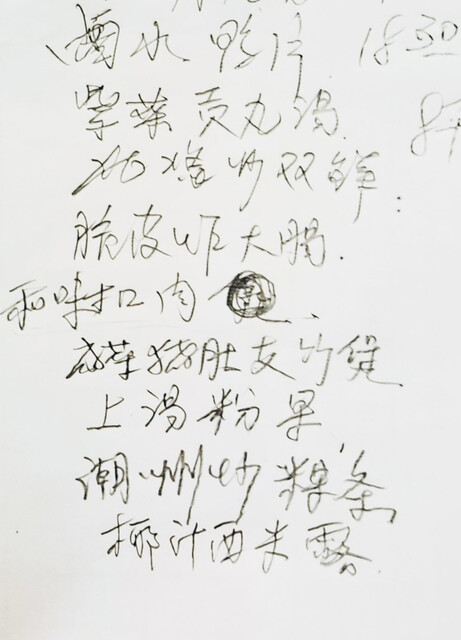 卤水鸭片 1830
紫菜贡丸汤
炒双鲜
脆皮炸大肠
和味扣肉
咸菜猪肚支竹煲
上汤粉果
潮州炒粿条
椰汁西米露